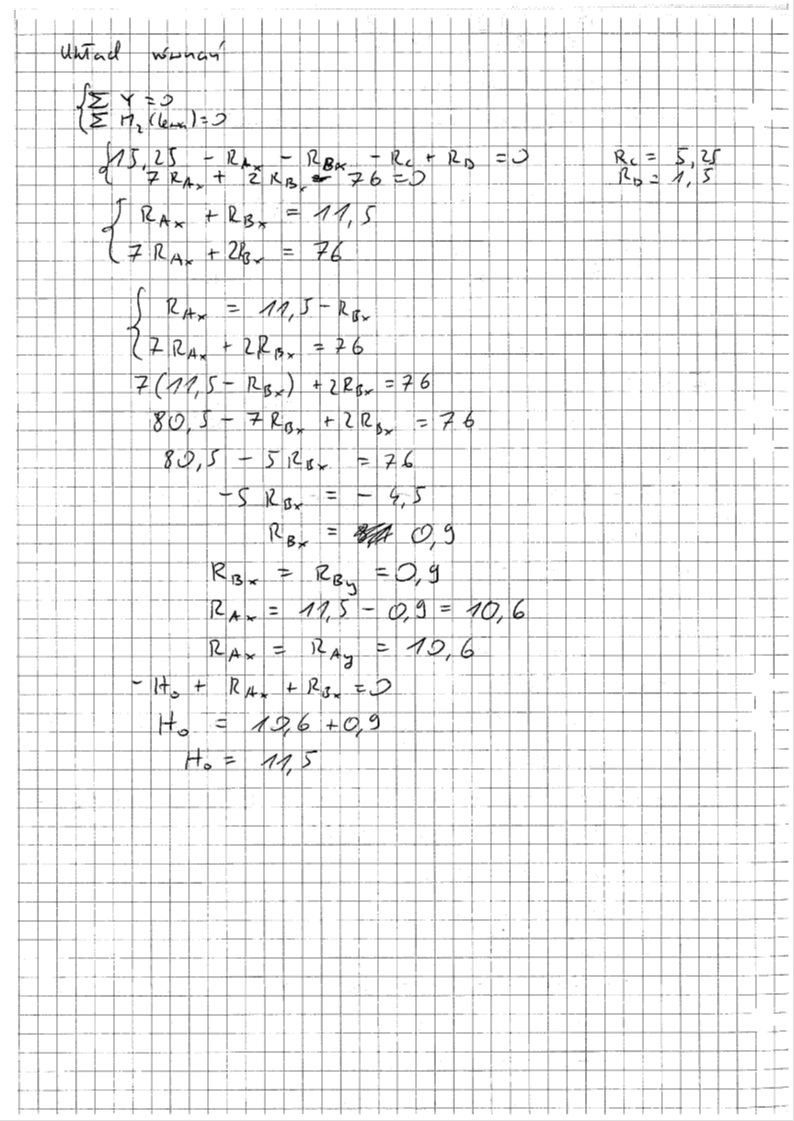 Układ równań
{ Σ Y = 0
Σ M₂ (lewa) = 0
{ 15,25 - R_Ax - R_Bx - R_C + R_D = 0 R_C = 5,25
7 R_Ax + 2 R_Bx - 76 = 0 R_D = 1,5
{ R_Ax + R_Bx = 11,5
7 R_Ax + 2R_Bx = 76
{ R_Ax = 11,5 - R_Bx
7 R_Ax + 2R_Bx = 76
7(11,5 - R_Bx) + 2R_Bx = 76
80,5 - 7 R_Bx + 2 R_Bx = 76
80,5 - 5 R_Bx = 76
-5 R_Bx = - 4,5
R_Bx = 0,9
R_Bx = R_By = 0,9
R_Ax = 11,5 - 0,9 = 10,6
R_Ax = R_Ay = 10,6
- H₀ + R_Ax + R_Bx = 0
H₀ = 10,6 + 0,9
H₀ = 11,5